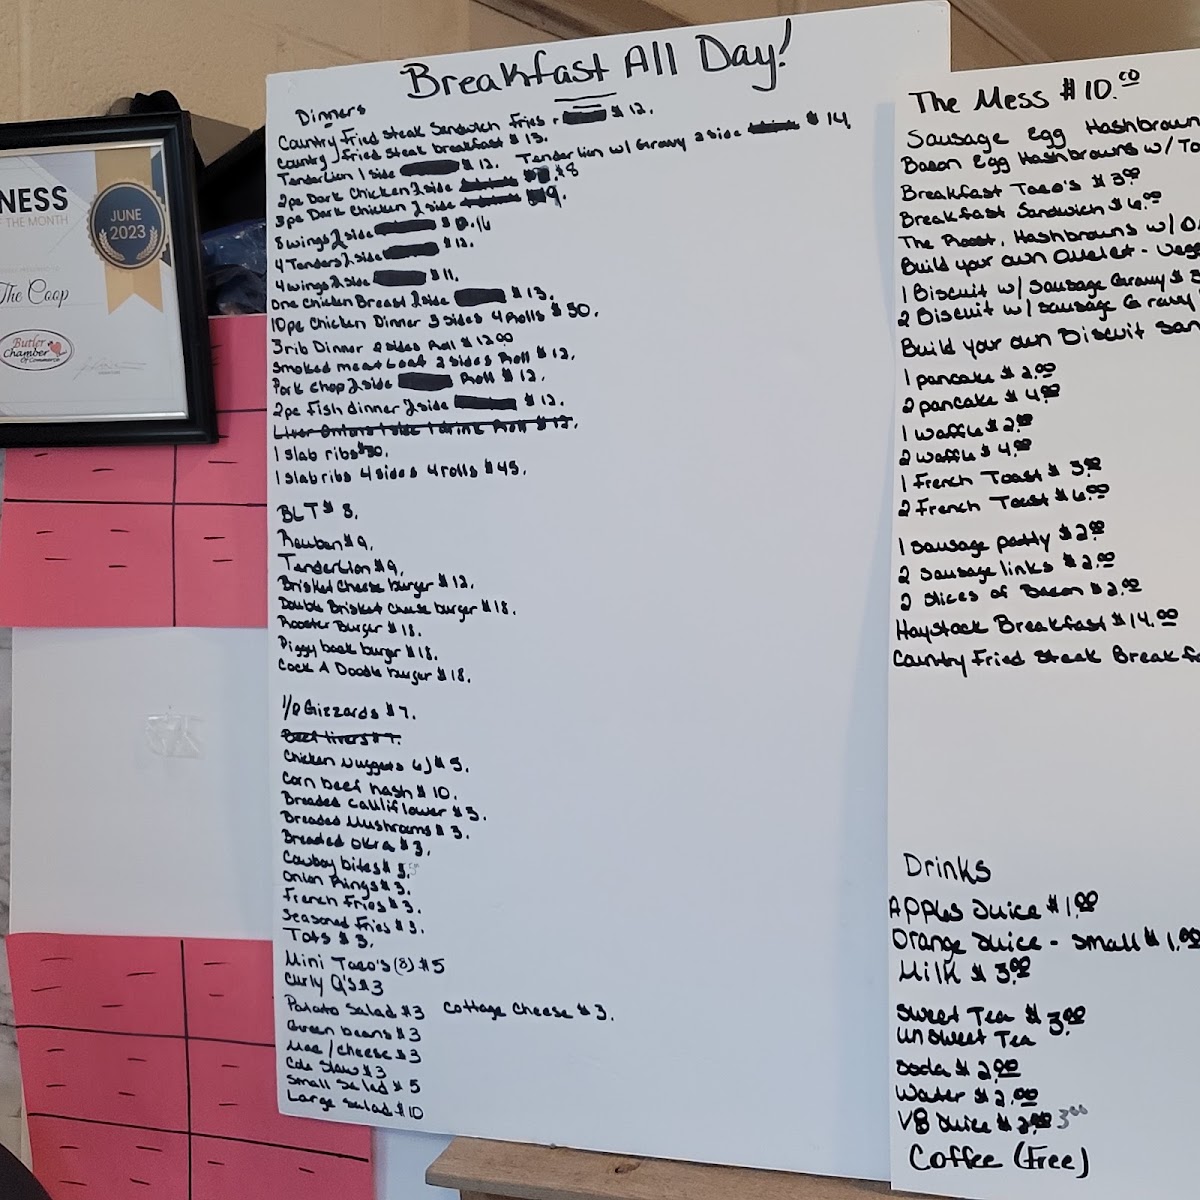 NESS
OF THE MONTH
JUNE
2023
The Coop
Butler
Chamber
Of Commerce
Breakfast All Day!
Dinners
Country Fried Steak Sandwich Fries $12.
Country Fried Steak breakfast $13.
Tenderlion 1 side $12. Tenderlion w/ Gravy 2 side $14
2pc Dark Chicken 2 side $8
3pc Dark Chicken 2 side 9.
8 wings 2 side
4 Tenders 2 side $12.
4 wings 2 side $11.
One Chicken Breast 2 side $13.
10pc Chicken Dinner 3 sides 4 Rolls $50.
3 rib Dinner 2 sides Roll $12.00
Smoked meat Loaf 2 sides Roll $12.
Pork chop 2 side Roll $12.
2pc Fish dinner 2 side $12.
Liver Onions 1 side 1 drink Roll $12.
1 slab ribs $30.
1 slab ribs 4 sides 4 rolls $45.
BLT $8.
Reuben $9.
Tenderlion $9.
Brisket Cheese burger $12.
Double Brisket Cheese burger $18.
Rooster Burger $18.
Piggy back burger $18.
Cock A Doodle burger $18.
Gizzards $7.
Beef livers $7.
Chicken Nuggets 6) $5.
Corn beef hash $10.
Breaded Cauliflower $3.
Breaded Mushrooms $3.
Breaded Okra $3.
Cowboy bites $5.
Onion Rings $3.
French Fries $3.
Seasoned Fries $3.
Tots $3.
Mini Taco's (8) $5
Curly Q's $3
Potato Salad $3 Cottage Cheese $3.
Green beans $3
Mac/cheese $3
Cole Slaw $3
Small Salad $5
Large Salad $10
The Mess $10.00
Sausage Egg Hashbrown
Bacon Egg Hashbrowns w/ To
Breakfast Taco's $3.00
Breakfast Sandwich $6.00
The Roost, Hashbrowns w/
Build your own Omelet - Vege
1 Biscuit w/ Sausage Gravy $
2 Biscuit w/ Sausage Gravy
Build your own Biscuit San
1 pancake $2.00
2 pancake $4.00
1 waffle $2.00
2 waffle $4.00
1 French Toast $3.00
2 French Toast $6.00
1 sausage patty $2.00
2 sausage links $2.00
2 slices of Bacon $2.00
Haystack Breakfast $14.00
Country Fried Steak Breakfa
Drinks
Apples Juice $1.00
Orange Juice - small $1.00
Milk $3.00
Sweet Tea $3.00
Unsweet Tea
Soda $2.00
Water $2.00
V8 Juice $2.00 3.00
Coffee (Free)